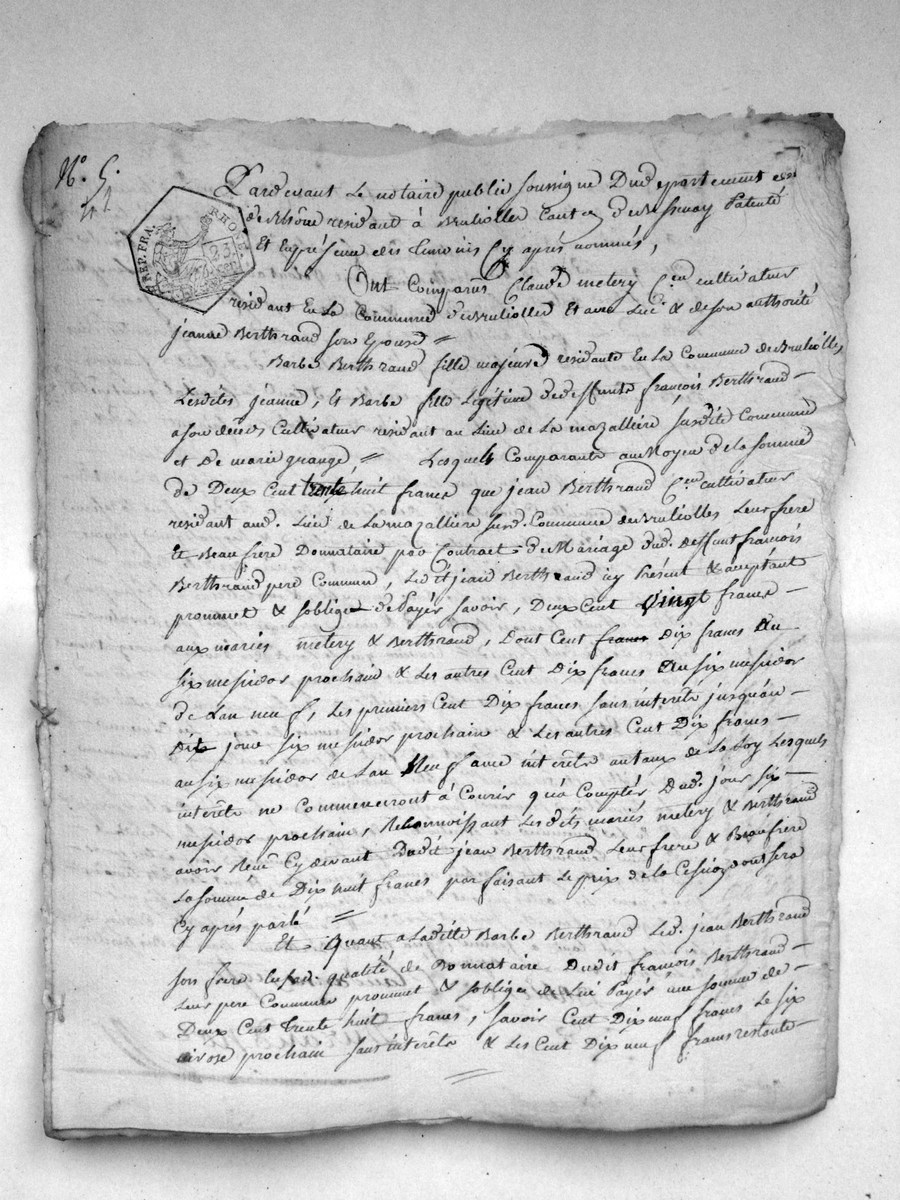 N.° 5.
REP. FRA. RHONE. 25
Pardevant Le notaire public soussigne Dud epartement
de Rhône residant à Brulliolles Canton de Bessenay Patenté
Et En présence des temoins Cy après nommés,
Ont Comparus Claude metery C.en cultivateur
residant En La Commune de Brulliolles Et avec Lui & de son authorité
jeanne Berthrand son Epouse =
Barbe Berthrand fille majeure residante En La Commune de Brulliolles
Lesdites jeanne, Et Barbe filles Légitime de deffunts françois Berthrand
a son deces Cultivateur residant au Lieu de La mazalliere susdite Commune
et De marie grange, = Lesquels Comparants au Moyen de la somme
de Deux Cent trente huit francs que jean Berthrand C.en cultivateur
residant aud. Lieu de La mazalliere susd. Commune de Brulliolles Leur frère
Et Beaufrere Donnataire par Contract de Mariage dud. deffunt françois
Berthrand pere Commun, Ledit jean Berthrand icy présent & acceptant
prommet & soblige de Payer savoir, Deux Cent vingt francs
aux mariés metery & Berthrand, Dont Cent francs Dix francs au
six messidor prochain & Les autres Cent Dix francs au six messidor
de Lan neuf, Les premiers Cent Dix francs sans interêt jusquau
dit jour six messidor prochain & Les autres Cent Dix francs
au six messidor de Lan Neuf avec interêts au taux de La Loy Lesquels
interêts ne Commenceront à Courir qu'à Compter Dud. jour six
messidor prochain, Reconnoissant Lesdits mariés metery & Berthrand
avoir Reçu Cy devant Dudit jean Berthrand Leur frere & Beaufrere
La somme de Dix huit francs par faisant Le prix de la Cession dont sera
Cy après parlé =
Et Quant a Laditte Barbe Berthrand Led. jean Berthrand
son frere qualité de Donnataire Dudit françois Berthrand
Leur pere Commun prommet & soblige de Lui Payer une somme de
Deux Cent trente huit francs, savoir Cent Dix neuf francs Le six
nivose prochain sans interêts & Les Cent Dix neuf francs restante